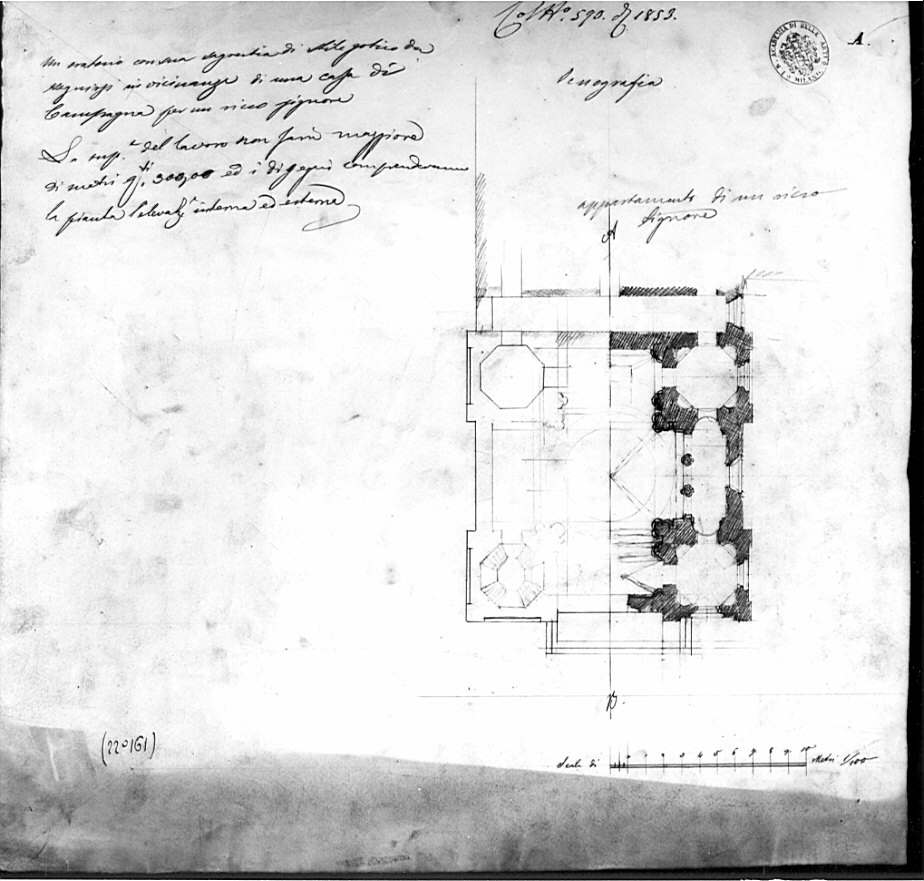 Col N.º 590. di 1859.
A.
ACCADEMIA DI BELLE ARTI
DI MILANO
Un oratorio con sua sagrestia di stile gotico da
eseguirsi in vicinanza di una casa di
Campagna per un ricco signore
La sup.e del lavoro non sarà maggiore
di metri q.ti 300,00 ed i disegni comprenderanno
la pianta l'elevaz.e interna ed esterna
Icnografia
appartamento di un ricco
Signore
A
B.
(22º161)
Scala di
0 1 2 3 4 5 6 7 8 9 10
Metri 1/100